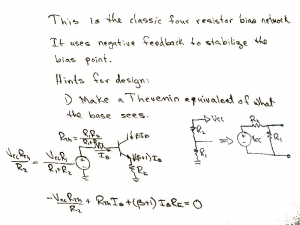 This is the classic four resistor bias network.
It uses negative feedback to stabilize the
bias point.
Hints for design:
1) Make a Thevenin equivalent of what
the base sees.
RTH = R1R2 / R1+R2
βIB
IB
(β+1)IB
RE
VccRTH / R2 = VccR1 / R1+R2
Vcc
R2
R1
=>
R2
Vcc
R1
-VccRTH / R2 + RTH IB + (β+1) IB RE = 0